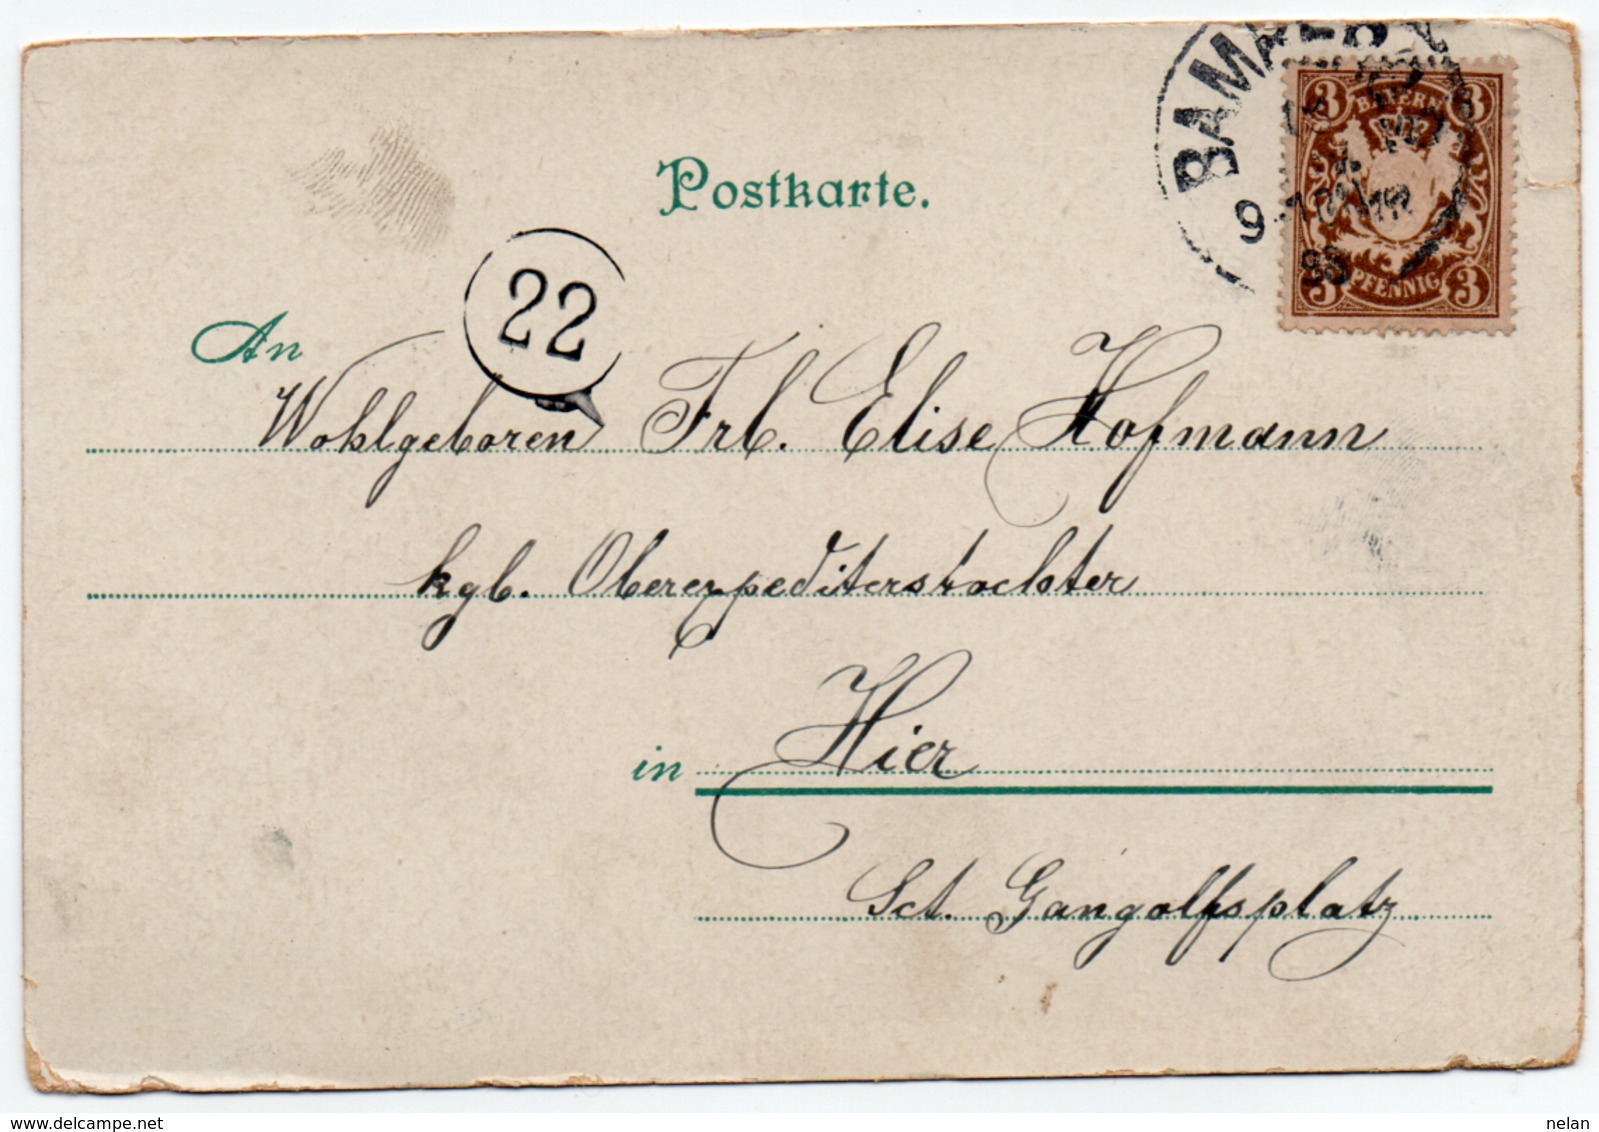 BAMBERG
3 BAYERN 3
3 PFENNIG 3
98
Postkarte.
22
An
Wohlgeboren Frl. Elise Hofmann
kgl. Oberexpeditorstochter
in Hier
Sct. Gangolfsplatz
delcampe.net
nelan